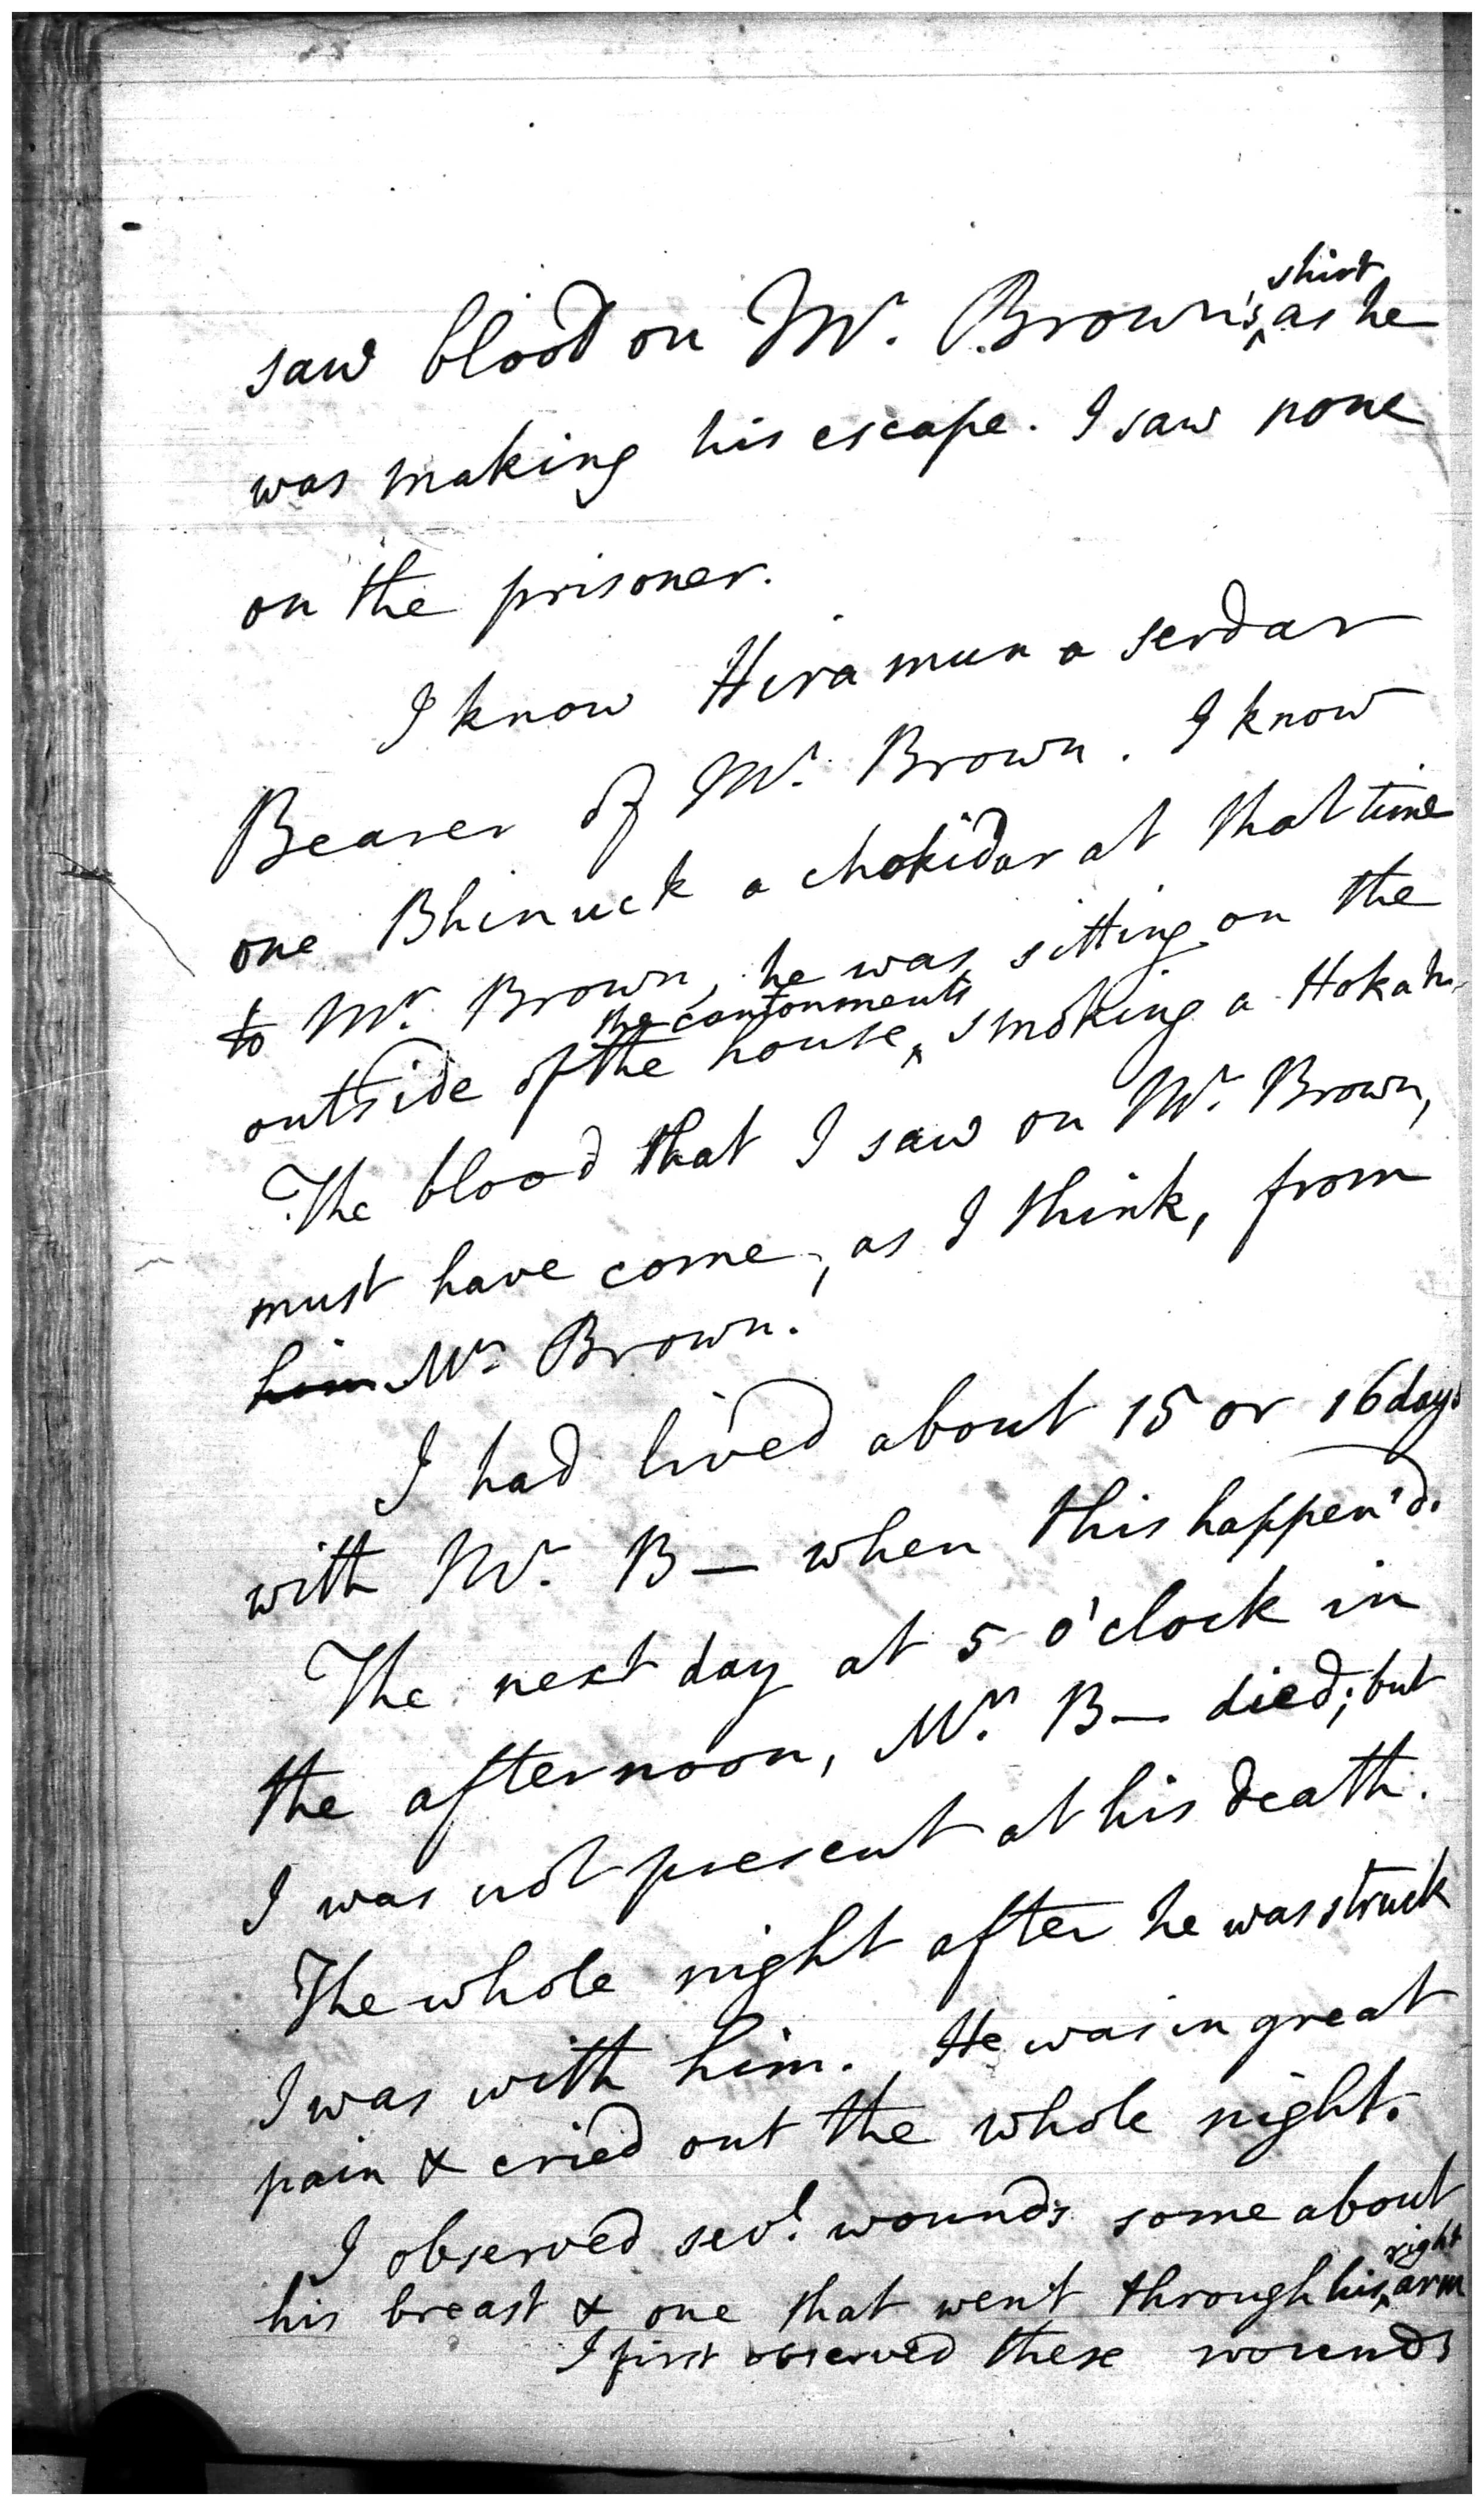 saw blood on Mr. Brown's shirt as he
was making his escape. I saw none
on the prisoner.
I know Hiramun a serdar
Bearer of Mr. Brown. I know
one Bhinuck a chokidar at that time
to Mr. Brown, he was sitting on the
outside of the house, the cantonments smoking a Hokah.
The blood that I saw on Mr. Brown,
must have come, as I think, from
him Mr. Brown.
I had lived about 15 or 16 days
with Mr. B— when this happen'd.
The next day at 5 o'clock in
the afternoon, Mr. B— died; but
I was not present at his death.
The whole night after he was struck
I was with him. He was in great
pain & cried out the whole night.
I observed sevl. wounds some about
his breast & one that went through his right arm
I first observed these wounds